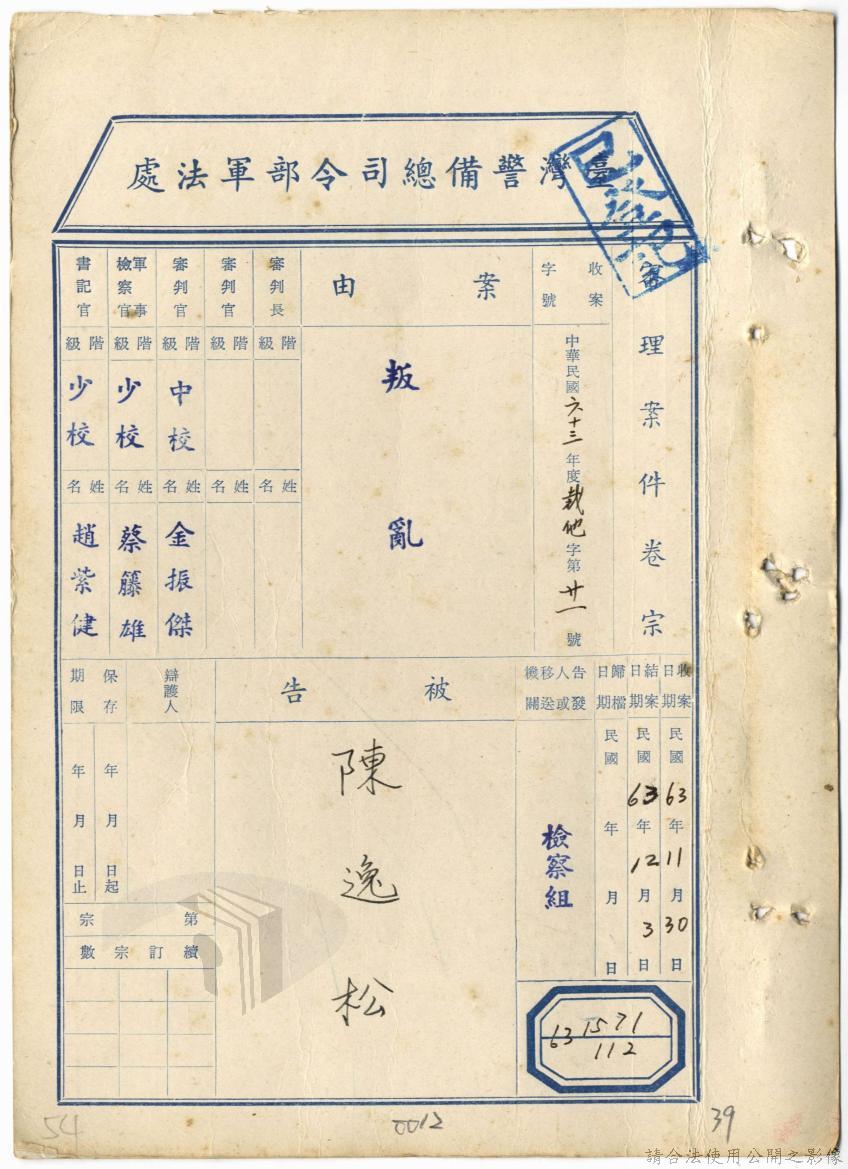 臺灣警備總司令部軍法處
審理案件卷宗
收案字號
中華民國六十三年度裁他字第廿一號
案由
叛亂
審判長
階級
姓名
審判官
階級
姓名
審判官
階級
中校
姓名
金振傑
軍事檢察官
階級
少校
姓名
蔡籐雄
書記官
階級
少校
姓名
趙紫健
收案日期
民國63年11月30日
結案日期
民國63年12月3日
歸檔日期
民國 年 月 日
告發人或移送機關
檢察組
被告
陳逸松
辯護人
保存期限
年 月 日起
年 月 日止
第 宗
續訂宗數
63 1571
112
54
0012
39
請合法使用公開之影像